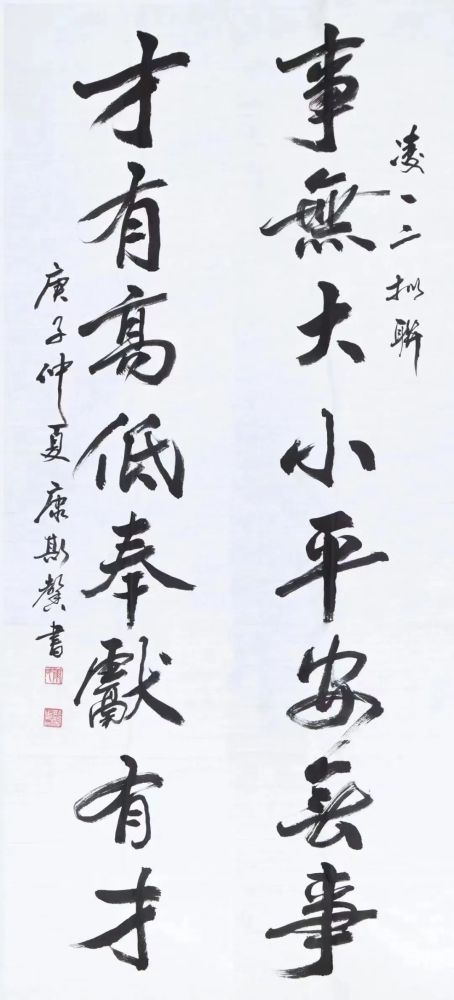 凌一二拟聯
事無大小平安無事
才有高低奉獻有才
庚子仲夏康斯馨書